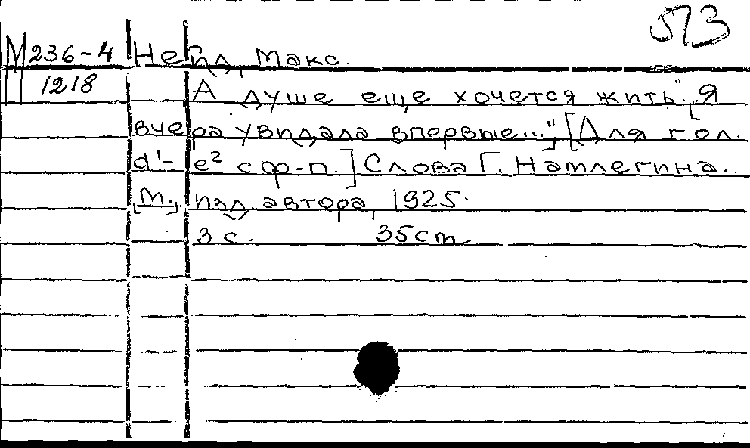 573
М 236-4 Нейд, Макс.
П 1218 А душе еще хочется жить. "Я
вчера увидала впервые..." [Для гол.
d¹- e² с ф-п.] Слова Г. Натлегина.
[М.], изд. автора, 1925.
3 с. 35cm